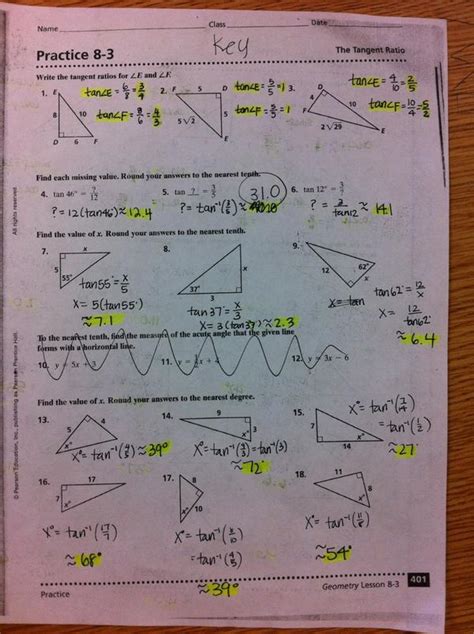 Name Class Date
Key
Practice 8-3 The Tangent Ratio
Write the tangent ratios for ∠E and ∠F.
1. E 8 10 D 6 F tan∠E = 6/8 = 3/4
tan∠F = 8/6 = 4/3
2. F 5 D 5√2 E tan∠E = 5/5 = 1
tan∠F = 5/5 = 1
3. D F 4 2√29 E tan∠E = 4/10 = 2/5
tan∠F = 10/4 = 5/2
Find each missing value. Round your answers to the nearest tenth.
4. tan 46° = ?/12 5. tan ? = 3/5 31.0 6. tan 12° = 3/?
? = 12(tan46) ≈ 12.4 ? = tan⁻¹(3/5) ≈ ? = /tan12 ≈ 14.1
Find the value of x. Round your answers to the nearest tenth.
7. x 5 55° tan55° = x/5
x = 5(tan55°)
≈ 7.1
8. x 37° 3 tan37° = x/3
x = 3(tan37) ≈ 2.3
9. 12 62° x tan62° = 12/x
x = 12/tan62°
≈ 6.4
To the nearest tenth, find the measure of the acute angle that the given line
forms with a horizontal line.
10. y = 5x + 3 11. 12. y = 3x − 6
Find the value of x. Round your answers to the nearest degree.
13. 5 4 x°
x° = tan⁻¹(4/5) ≈ 39°
14. 9 3 x°
x° = tan⁻¹(9/3) = tan⁻¹(3)
≈ 72°
15. 7 14 x° x° = tan⁻¹(7/14)
= tan⁻¹(1/2)
≈ 27°
16. 17 7 x°
x° = tan⁻¹(17/7)
≈ 68°
17. 8 10 x°
x° = tan⁻¹(8/10)
= tan⁻¹(4/5)
≈ 39°
18. 11 8 x°
x° = tan⁻¹(11/8)
≈ 54°
Practice Geometry Lesson 8-3 401
© Pearson Education, Inc., publishing as Pearson Prentice Hall. All rights reserved.